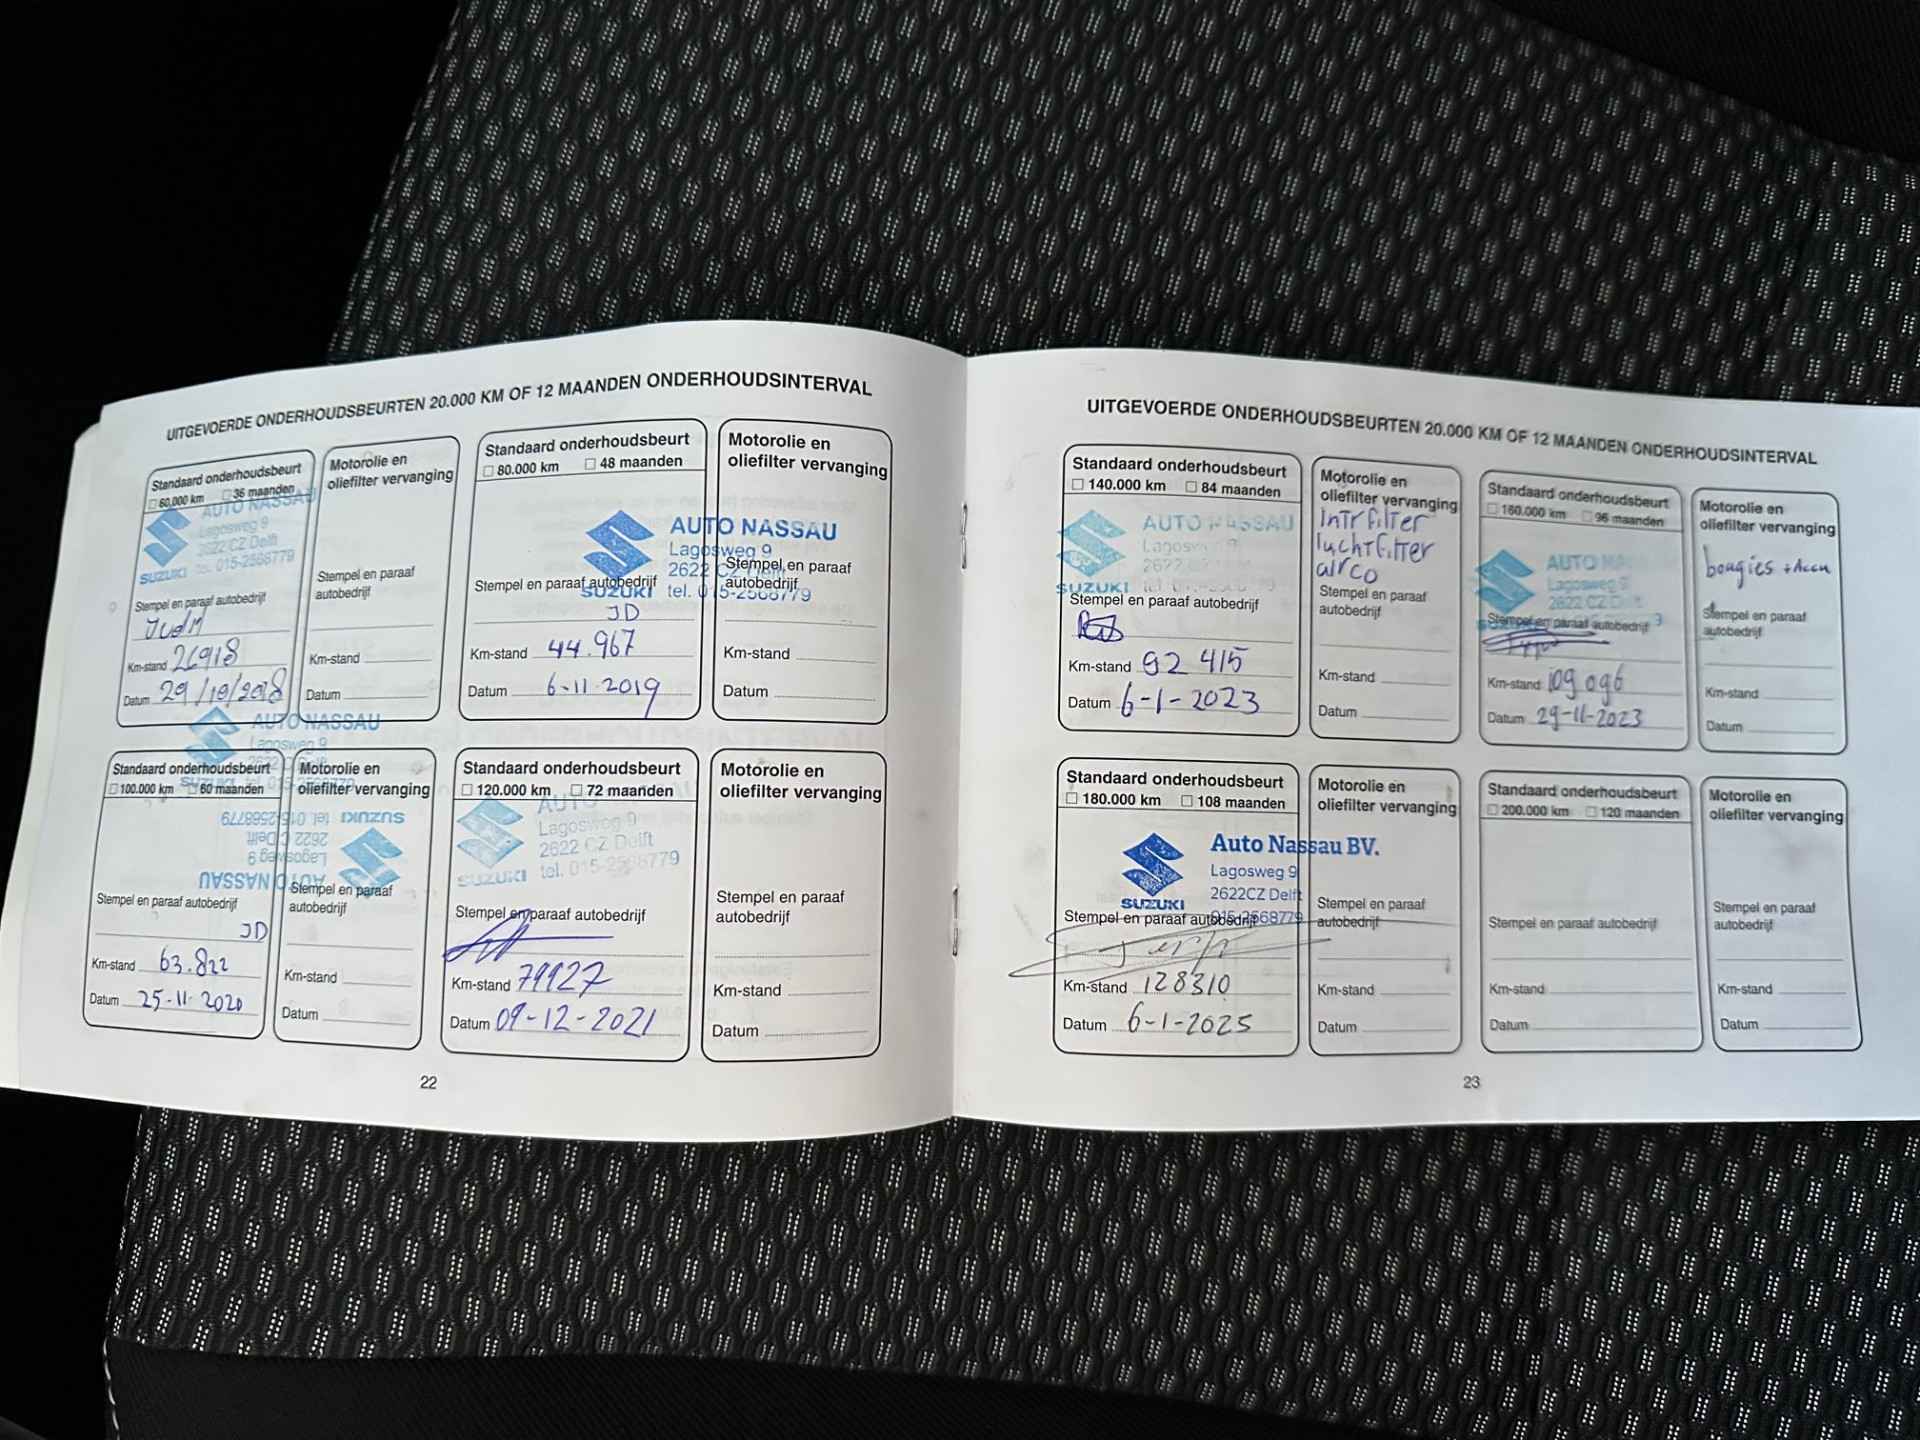 UITGEVOERDE ONDERHOUDSBEURTEN 20.000 KM OF 12 MAANDEN ONDERHOUDSINTERVAL
Standaard onderhoudsbeurt
☐ 60.000 km ☐ 36 maanden
AUTO NASSAU
Lagosweg 9
2622 CZ Delft
SUZUKI tel. 015-2568779
Stempel en paraaf autobedrijf
Km-stand 26918
Datum 29/10/2018
Motorolie en
oliefilter vervanging
Stempel en paraaf
autobedrijf
Km-stand
Datum
Standaard onderhoudsbeurt
☐ 80.000 km ☐ 48 maanden
AUTO NASSAU
Lagosweg 9
2622 CZ Delft
SUZUKI tel. 015-2568779
Stempel en paraaf autobedrijf
JD
Km-stand 44.967
Datum 6-11-2019
Motorolie en
oliefilter vervanging
Stempel en paraaf
autobedrijf
Km-stand
Datum
AUTO NASSAU
Lagosweg 9
2622 CZ Delft
SUZUKI tel. 015-2568779
Standaard onderhoudsbeurt
☐ 100.000 km ☐ 60 maanden
SUZUKI tel. 015-2568779
2622 CZ Delft
Lagosweg 9
AUTO NASSAU
Stempel en paraaf autobedrijf
JD
Km-stand 63.822
Datum 25-11-2020
Motorolie en
oliefilter vervanging
Stempel en paraaf
autobedrijf
Km-stand
Datum
Standaard onderhoudsbeurt
☐ 120.000 km ☐ 72 maanden
AUTO
Lagosweg 9
2622 CZ Delft
SUZUKI tel. 015-2568779
Stempel en paraaf autobedrijf
Km-stand 79927
Datum 09-12-2021
Motorolie en
oliefilter vervanging
Stempel en paraaf
autobedrijf
Km-stand
Datum
22
UITGEVOERDE ONDERHOUDSBEURTEN 20.000 KM OF 12 MAANDEN ONDERHOUDSINTERVAL
Standaard onderhoudsbeurt
☐ 140.000 km ☐ 84 maanden
AUTO NASSAU
Lagosweg 9
2622
SUZUKI tel. 015-2568779
Stempel en paraaf autobedrijf
Km-stand 92 415
Datum 6-1-2023
Motorolie en
oliefilter vervanging
Intrfilter
luchtfilter
airco
Stempel en paraaf
autobedrijf
Km-stand
Datum
Standaard onderhoudsbeurt
☐ 160.000 km ☐ 96 maanden
AUTO NASSAU
Lagosweg 9
2622 CZ Delft
Stempel en paraaf autobedrijf
Km-stand 109 096
Datum 29-11-2023
Motorolie en
oliefilter vervanging
bougies + Accu
Stempel en paraaf
autobedrijf
Km-stand
Datum
Standaard onderhoudsbeurt
☐ 180.000 km ☐ 108 maanden
Auto Nassau BV.
Lagosweg 9
2622CZ Delft
SUZUKI 015-2568779
Stempel en paraaf autobedrijf
Km-stand 128310
Datum 6-1-2025
Motorolie en
oliefilter vervanging
Stempel en paraaf
autobedrijf
Km-stand
Datum
Standaard onderhoudsbeurt
☐ 200.000 km ☐ 120 maanden
Stempel en paraaf autobedrijf
Km-stand
Datum
Motorolie en
oliefilter vervanging
Stempel en paraaf
autobedrijf
Km-stand
Datum
23